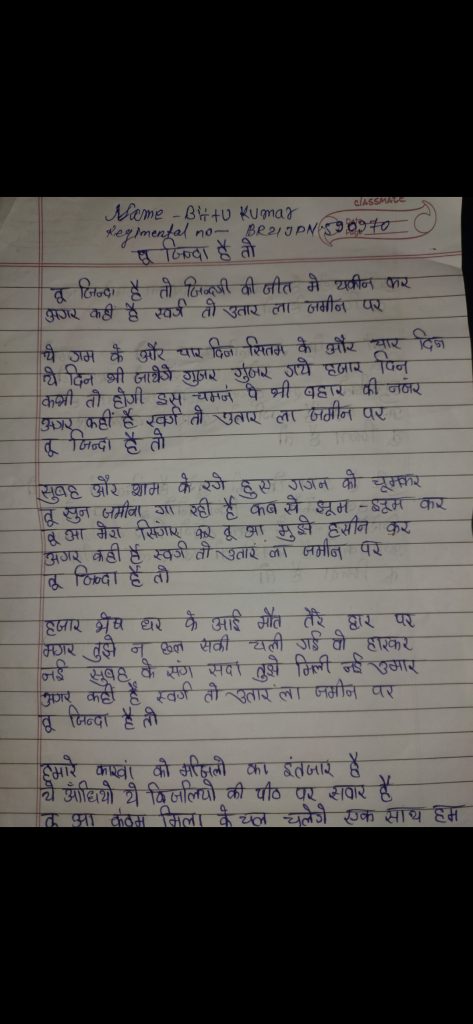 CLASSMATE
Name - Bittu Kumar
Regimental no - BR21JPN 590970
तू जिन्दा है तो
तू जिन्दा है तो जिन्दगी की जीत मे यकीन कर
अगर कही है स्वर्ग तो उतार ला जमीन पर
ये गम के और चार दिन सितम के और चार दिन
ये दिन भी जायेंगे गुजर गुंजर गये हजार दिन
कभी तो होगी इस चमन पे भी बहार की नजर
अगर कहीं है स्वर्ग तो उतार ला जमीन पर
तू जिन्दा है तो
सुबह और शाम के रंगे हुए गगन को चूमकर
तू सुन जमीन गा रही है कब से झूम-झूम कर
तू आ मेरा सिंगार कर तू आ मुझे हसीन कर
अगर कही है स्वर्ग तो उतार ला जमीन पर
तू जिन्दा है तो
हजार भेष धर के आई मौत तेरे द्वार पर
मगर तुझे न छल सकी चली गई वो हारकर
नई सुबह के संग सदा तुझे मिली नई उमार
अगर कही है स्वर्ग तो उतार ला जमीन पर
तू जिन्दा है तो
हमारे कारवां को मंजिलो का इंतजार है
ये आँधियो ये बिजलियो की पीठ पर सवार है
तू आ कदम मिला के चल चलेगे एक साथ हम